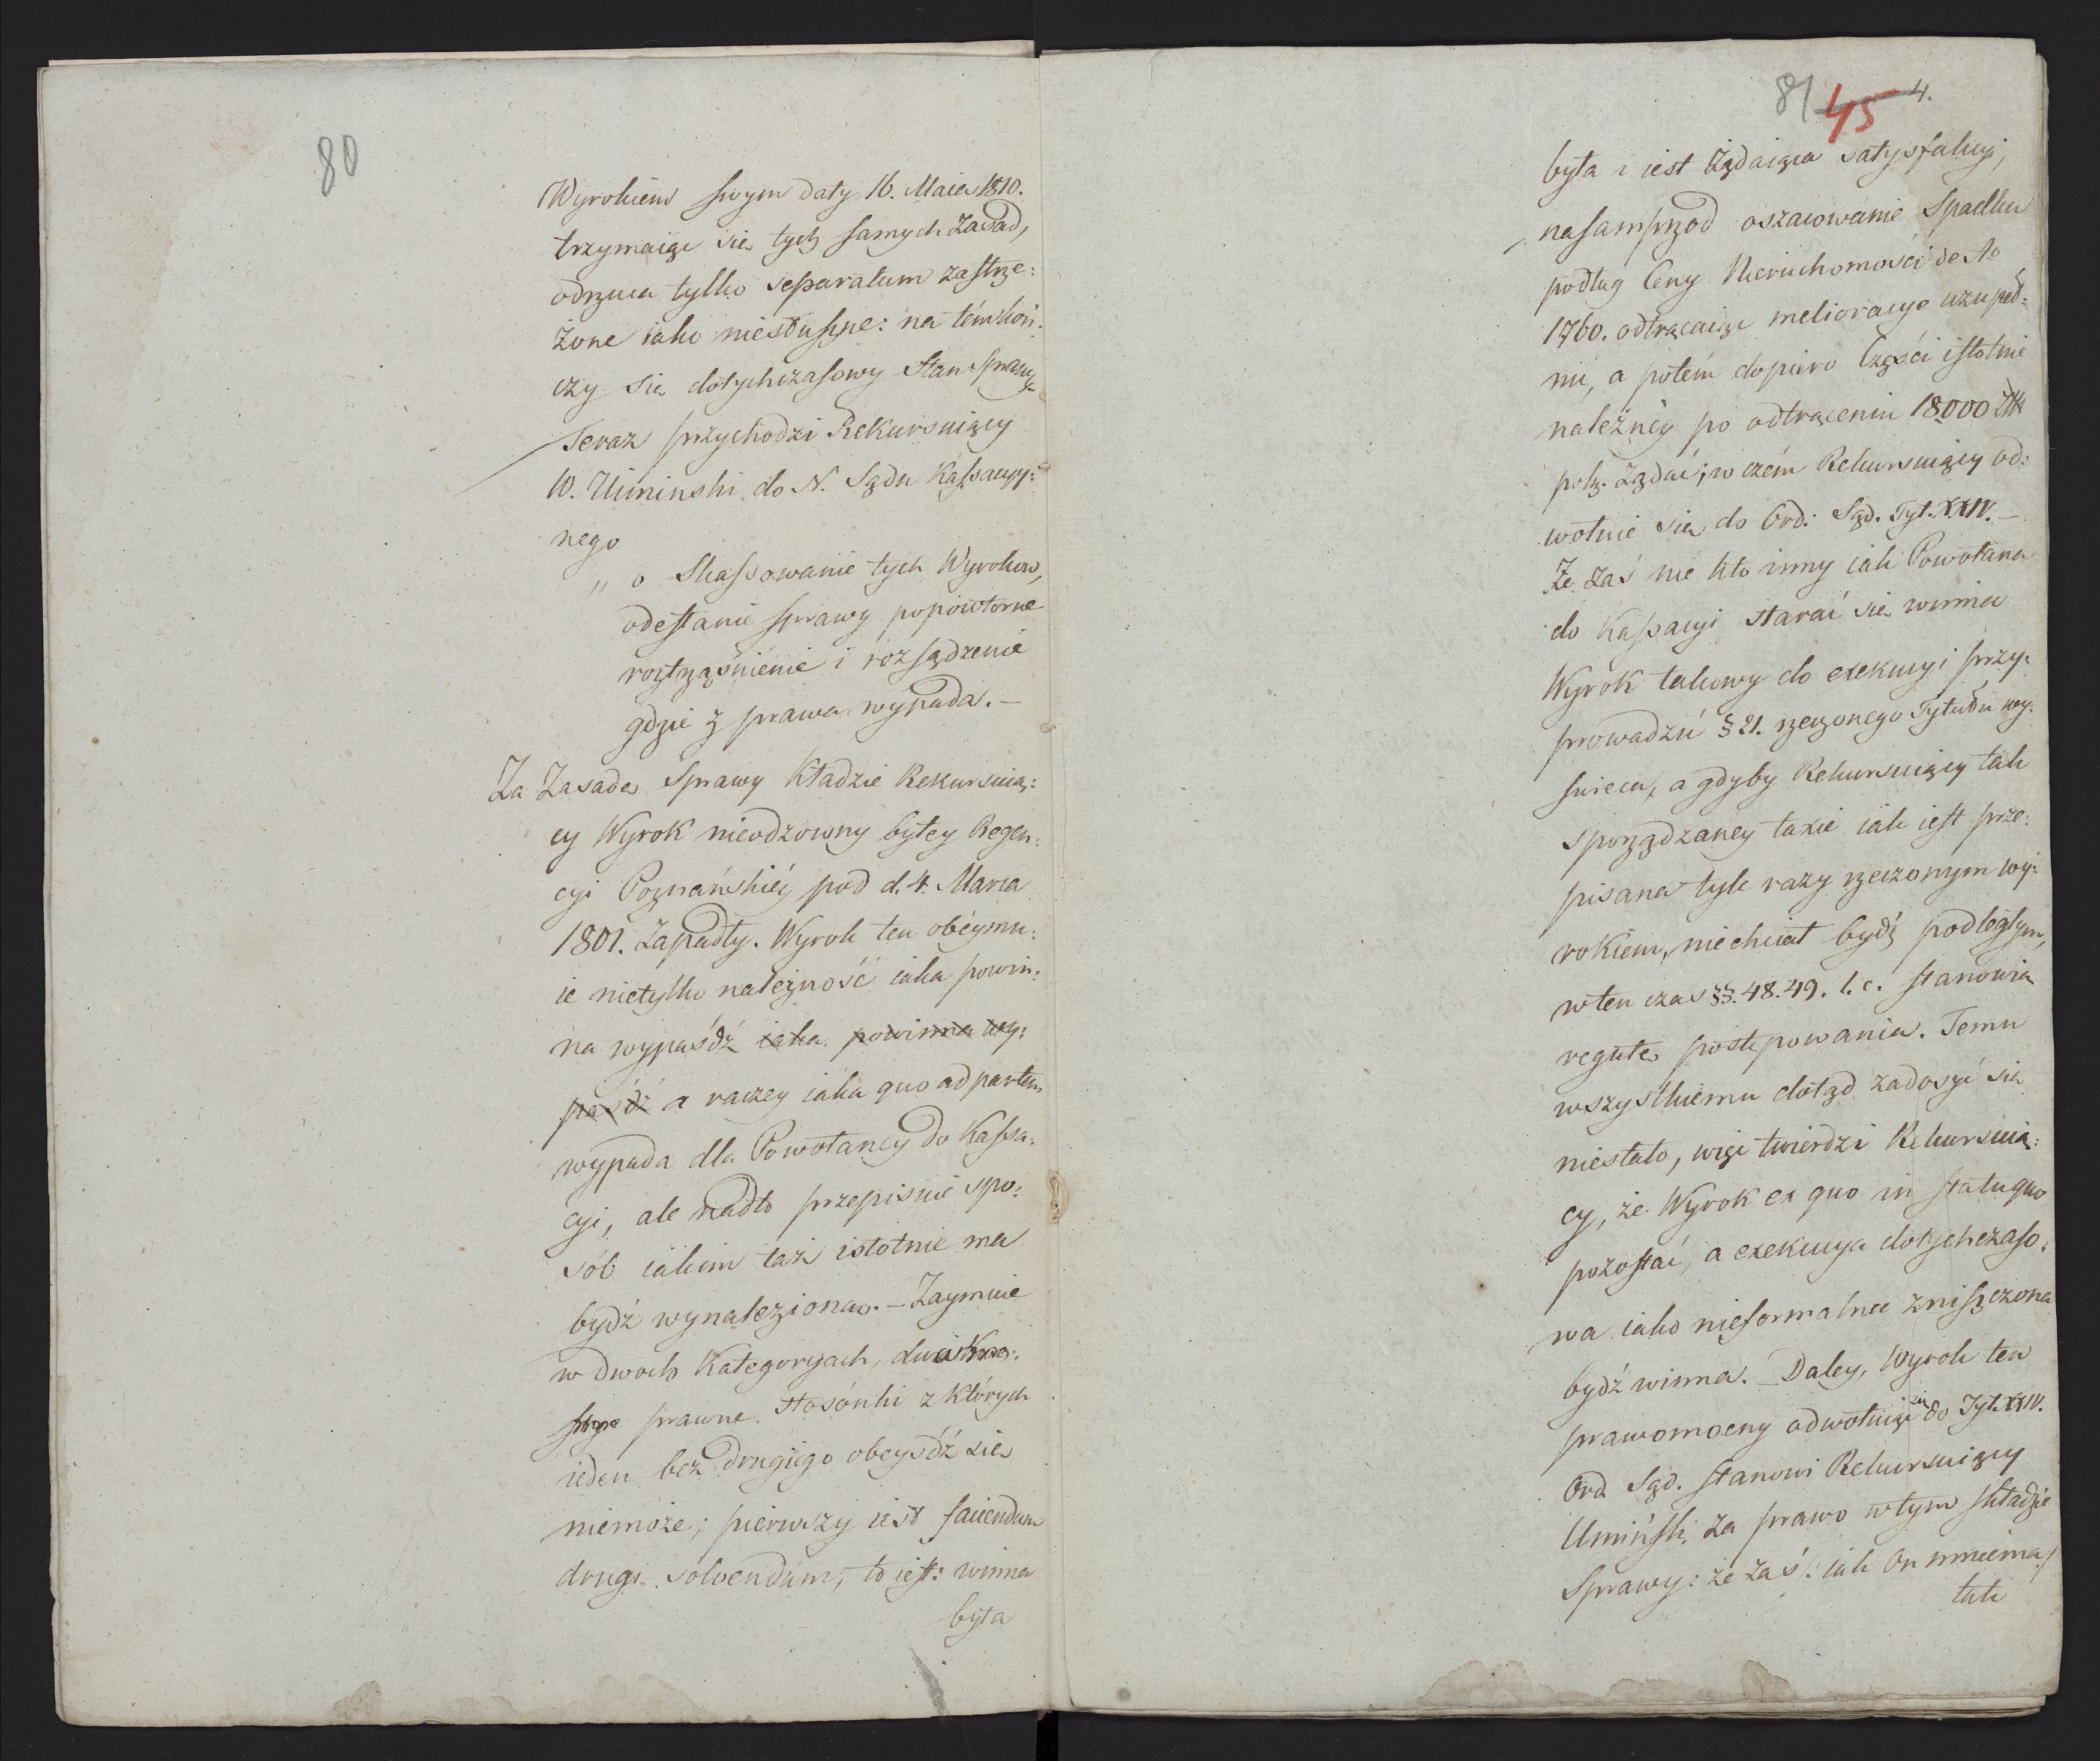 80
Wyrokiem swym daty 16. Maia 1810.
trzymaiąc się tych samych Zasad,
odrzuca tylko separatum zastrze:
żone iako niesłuszne: na tém koń:
czy się dotychczasowy Stan Sprawy
Teraz przychodzi Rekursuiący
W. Uminski do N. Sądu Kassacyy:
nego
" o Skassowanie tych Wyroków,
odesłanie sprawy popowtorne
roztrząśnienie i rozsądzenie
gdzie z prawa wypada. –
Za Zasadę Sprawy kładzie Rekursuią:
cy Wyrok nieodzowny byłey Regen:
cyi Poznańskiéy pod d. 4. Marca
1801. Zapadły. Wyrok ten obéymu:
ie nietylko należność iaka powin:
na wypaśdź iaka powinna wy:
paśdź a raczey iaka quo ad partem
wypada dla Powołaney do Kassa:
cyi, ale nadto przepisuie spo:
sób iakim taż istotnie ma
bydź wynaleziona. – Zaymuie
w dwoch Kategoryach, dwa
prawne stosónki z których
ieden bez drugiego obeyśdź się
niemoże; pierwszy iest faciendum
drugi solvendum, to iest: winna
była
81 45 4.
była i iest żądaiąca satysfakcyi,
nasamprzod oszacowanie Spadku
podług Ceny Nieruchomości de Ao
1760. odtrącaiąc melioracye uzupeł:
nić, a potém dopiero Części istotnie
należnéy po odtrąceniu 18000 Złł
polz. Żądać; w czém Rekursuiący od:
wołuie się do Ord: Sąd. Tyt. XXIV. –
Że zaś nie kto inny iak Powołana
do Kassacyi starać się winna
Wyrok takowy do exekucyi przy:
prowadzić § 21. rzeczonego Tytułu wy:
świeca, a gdyby Rekursuiący tak
sporządzaney taxie iak iest prze:
pisana tyle razy rzeczonym wy:
rokiem, niechciał bydź podległym,
w ten czas §§. 48. 49. l. c. stanowią
regułę postępowania. Temu
wszystkiemu dotąd zadosyć się
niestało, więc twierdzi Rekursuią:
cy, że Wyrok ex quo in statu quo
pozostać, a exekucya dotychczaso:
wa iako nieformalna zniszczona
bydź winna. – Daley, Wyrok ten
prawomocny odwołuiąc się do Tyt. XXIV.
Ord. Sąd. stanowi Rekursuiący
Umiński za prawo w tym składzie
Sprawy: że zaś /: iak On mniema /
tak